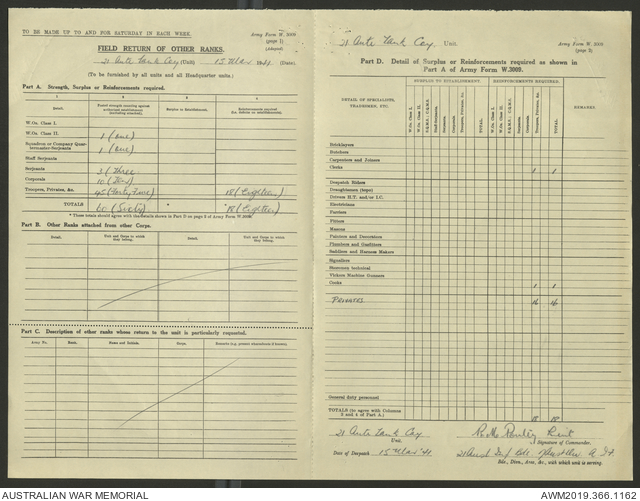 TO BE MADE UP TO AND FOR SATURDAY IN EACH WEEK.
Army Form W. 3009
(page 1)
(Adapted)
FIELD RETURN OF OTHER RANKS.
21 Anti Tank Coy (Unit) 15 Mar 1941 (Date)
(To be furnished by all units and all Headquarter units.)
Part A. Strength, Surplus or Reinforcements required.
1 2 3 4
Detail.
Surplus to Establishment.
W.Os. Class I.
W.Os. Class II. 1 (one)
Squadron or Company Quartermaster-Serjeants 1 (one)
Staff Serjeants
Serjeants 3 (Three)
Corporals 10 (Ten)
Troopers, Privates, &c. 45 (Forty Five) 18 (Eighteen)
TOTALS 60 (Sixty) * * 18 (Eighteen)
* These totals should agree with the details shown in Part D on page 2 of Army Form W.3009.
Part B. Other Ranks attached from other Corps.
Detail. Unit and Corps to which they belong. Detail. Unit and Corps to which they belong.
Part C. Description of other ranks whose return to the unit is particularly requested.
Army No. Rank. Name and Initials. Corps. Remarks (e.g., present whereabouts if known).
21 Anti Tank Coy. Unit.
Army Form W. 3009
(page 2)
Part D. Detail of Surplus or Reinforcements required as shown in
Part A of Army Form W.3009.
SURPLUS TO ESTABLISHMENT. REINFORCEMENTS REQUIRED.
DETAIL OF SPECIALISTS, TRADESMEN, ETC.
W.Os. Class I. W.Os. Class II. S.Q.M.S.; C.Q.M.S. Staff Serjeants. Serjeants. Corporals. Troopers, Privates, &c. TOTAL.
W.Os. Class I. W.Os. Class II. S.Q.M.S.; C.Q.M.S. Serjeants. Corporals. Troopers, Privates, &c. TOTAL.
REMARKS.
Bricklayers
Butchers
Carpenters and Joiners
Clerks 1 1
Despatch Riders
Draughtsmen (topo)
Drivers H.T. and/or I.C.
Electricians
Farriers
Fitters
Masons
Painters and Decorators
Plumbers and Gasfitters
Saddlers and Harness Makers
Signallers
Storemen technical
Vickers Machine Gunners
Cooks 1 1
PRIVATES 16 16
General duty personnel
TOTALS (to agree with Columns 3 and 4 of Part A.) 18 18
21 Anti Tank Coy
Unit.
Signature of Commander.
Date of Despatch 15 Mar '41
21 Aust Inf Bde A.I.F.
Bde., Divn., Area, &c., with which unit is serving.
AUSTRALIAN WAR MEMORIAL
AWM2019.366.1162